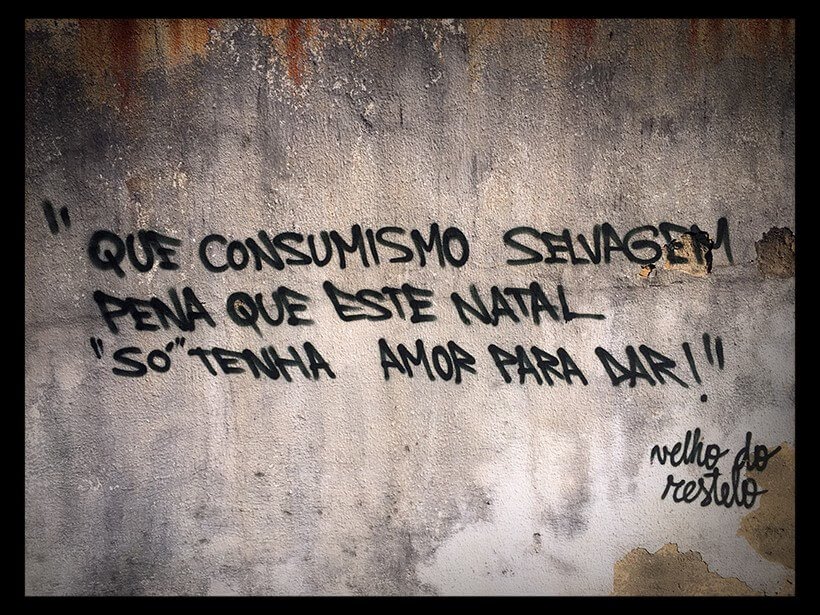 "QUE CONSUMISMO SELVAGEM
PENA QUE ESTE NATAL
"SÓ" TENHA AMOR PARA DAR!"
velho do
restelo